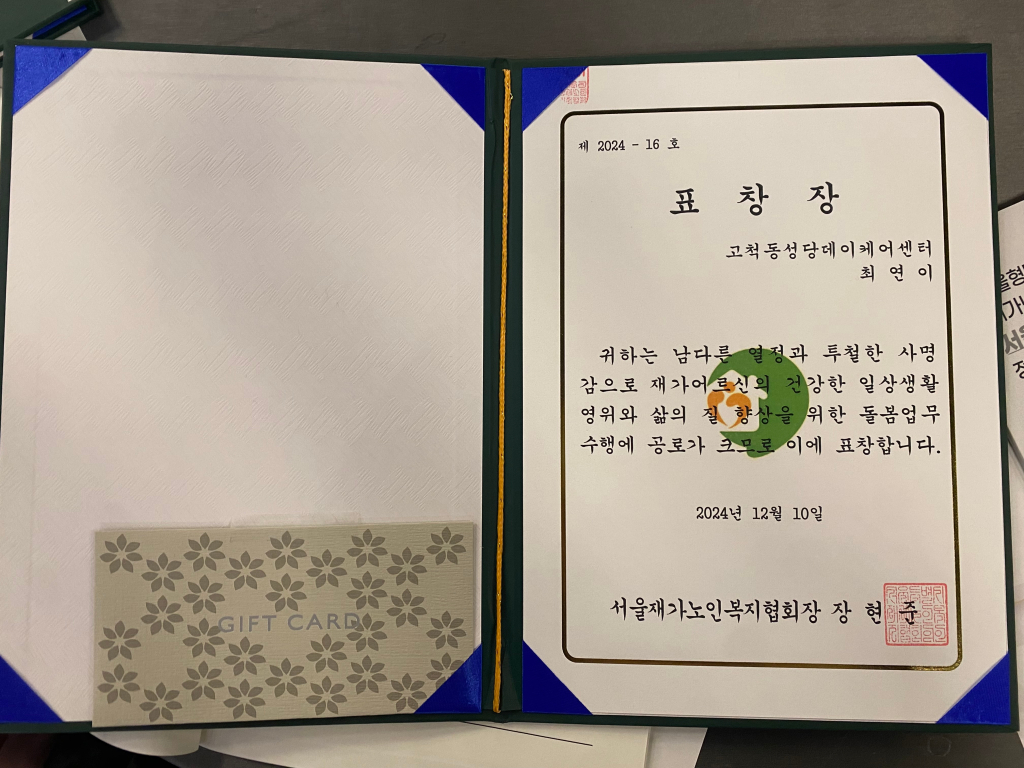 GIFT CARD
제 2024 - 16 호
표 창 장
고척동성당데이케어센터
최 연 이
귀하는 남다른 열정과 투철한 사명
감으로 재가어르신의 건강한 일상생활
영위와 삶의 질 향상을 위한 돌봄업무
수행에 공로가 크므로 이에 표창합니다.
2024년 12월 10일
서울재가노인복지협회장 장 현 준